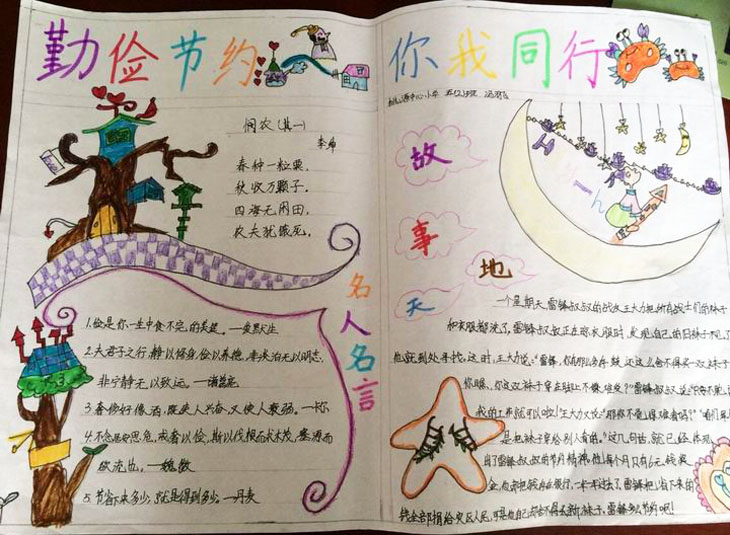 勤俭节约
你我同行
悯农(其一)
李绅
春种一粒粟,
秋收万颗子。
四海无闲田,
农夫犹饿死。
名人名言
1.俭是你一生中食不完的美筵。—爱默生
2.夫君子之行,静以修身,俭以养德,非淡泊无以明志,
非宁静无以致远。—诸葛亮
3.奢侈好像酒,既使人兴奋,又使人衰弱。—
4.不念居安思危,戒奢以俭,斯以伐根而求木茂,塞源而
欲流也。—魏徵
5.节省下来多少,就是得到多少。—丹麦
故
事
天
地
中心小学
一个星期天,雷锋叔叔的战友王大力把所有战士们的袜子
和衣服都洗了,雷锋叔叔正在晾衣服时,发现自己的旧袜子不见了
他就到处寻找。这时,王大力说:“雷锋,你有那么多存款,还这么舍不得买一双袜子
你瞧,你这双袜子穿在脚上不像
我的工
是把袜子穿给别人看的。”这几句话,就已经体现
出了雷锋叔叔的节约精神。他每个月只有6元钱奖
金,你却把钱存在银行,一年年过去了,雷锋把省下来的
钱全部捐给灾区人民,可是他自己却舍不得去新袜子。雷锋多么节约啊!